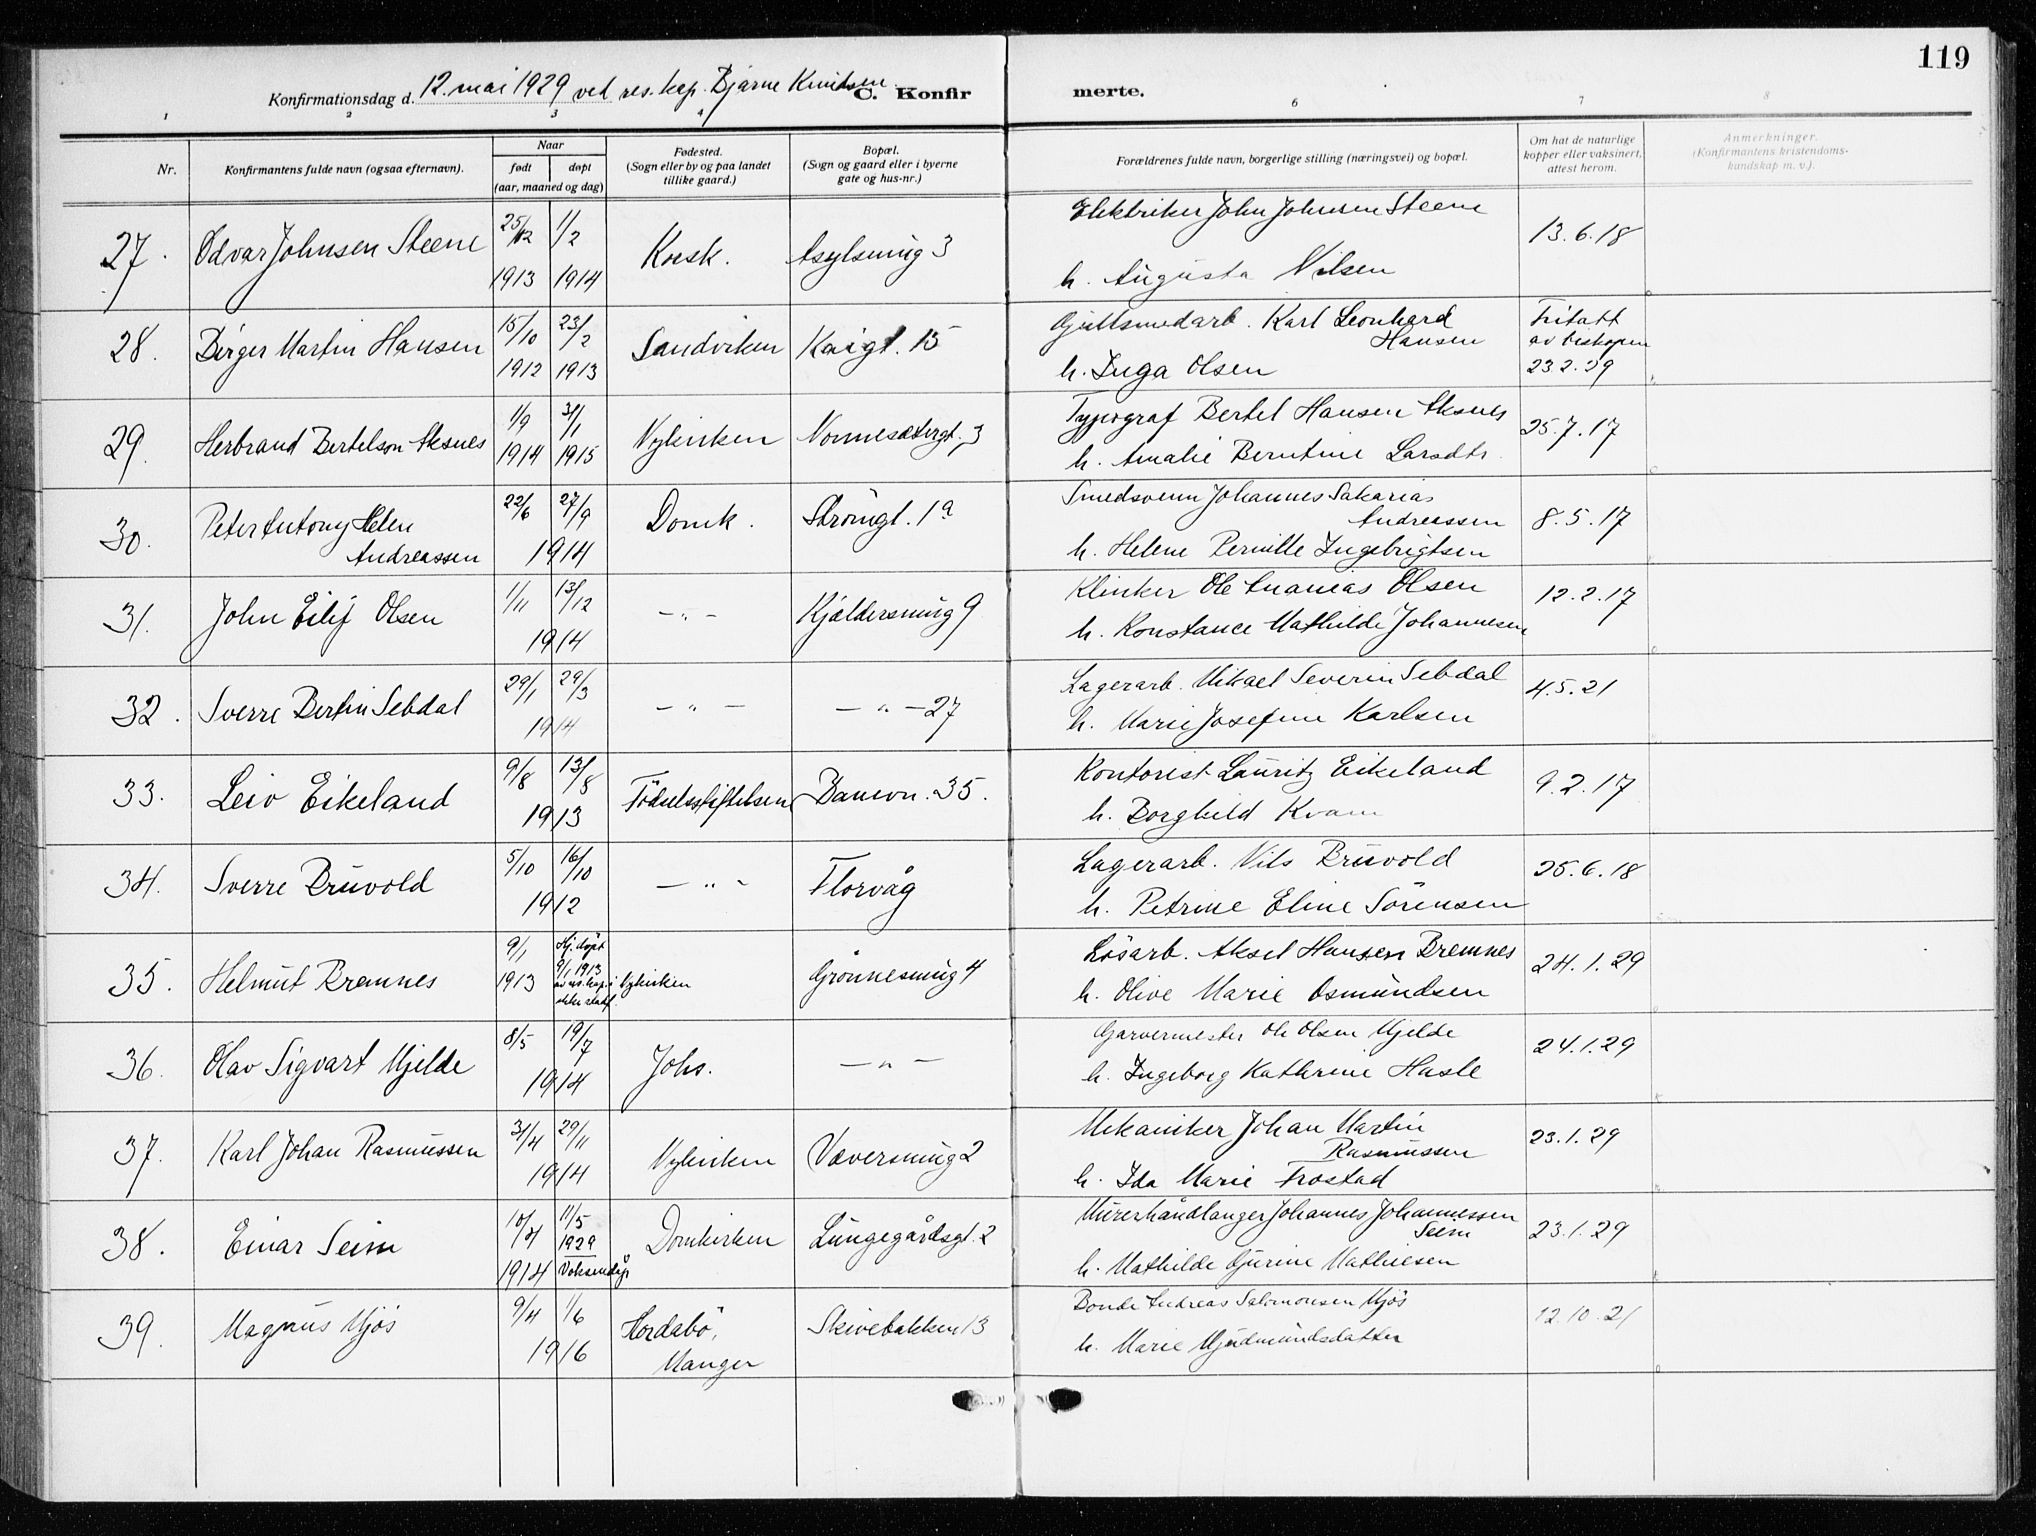 119
Konfirmationsdag d. 12. mai 1929 ved res. kap. Bjarne Knudsen C. Konfir merte.
1 2 3 4 6 7 8
Nr. Konfirmantens fulde navn (ogsaa efternavn). Naar født døpt (aar, maaned og dag) Fødested. (Sogn eller by og paa landet tillike gaard.) Bopæl. (Sogn og gaard eller i byerne gate og hus-nr.) Forældrenes fulde navn, borgerlige stilling (næringsvei) og bopæl. Om hat de naturlige kopper eller vaksinert, attest herom. Anmerkninger. (Konfirmantens kristendoms-kundskap m. v.).
27. Odvar Johnsen Steene 25/12 1913 1/2 1914 Korsk. Asylsmug 3 Elektriker John Johnsen Steene 13.6.18
h. Augusta Nilsen
28. Birger Martin Hansen 15/10 1912 23/2 1913 Sandviken Kaigt. 15 Gullsmedarb. Karl Leonhard Hansen Fritatt av biskopen 23.2.29
h. Inga Olsen
29. Herbrand Bertelson Aksnes 1/9 1914 31/1 1915 Nykirken Nonnesætergt. 3 Typograf Bertel Hansen Aksnes 25.7.17
h. Amalie Berntine Larsdtr.
30. Peter Antony Helen Andreassen 22/6 27/9 1914 Domk. Strömgt. 1a Smedsvenn Johannes Sakarias Andreassen 8.5.17
h. Helene Pernille Ingebrigtsen
31. John Eilif Olsen 1/11 13/12 1914 -"- Kjeldersmug 9 Klinker Ole Ananias Olsen 12.2.17
h. Konstance Mathilde Johannesen
32. Sverre Bertin Sebdal 29/1 29/3 1914 -"- -"- 27 Lagerarb. Mikael Severin Sebdal 4.5.21
h. Marie Josefine Karlsen
33. Leiv Eikeland 9/8 13/8 1913 Födselsstiftelsen Damsvn. 35. Kontorist Lauritz Eikeland 9.2.17
h. Borghild Kvam
34. Sverre Bruvold 5/10 16/10 1912 -"- Florvåg Lagerarb. Nils Bruvold 25.6.18
h. Petrine Eline Sörensen
35. Helmut Bremnes 9/1 1913 Hj. döpt 9/1 1913 av res. kap. Nykirken Grönnesmug 4 Lösarb. Aksel Hansen Bremnes 24.1.29
h. Olive Marie Osmundsen
36. Olav Sigvart Mjelde 8/5 19/7 1914 Johs. -"- Garvermester Ole Olsen Mjelde 24.1.29
h. Ingeborg Kathrine Hasle
37. Karl Johan Rasmussen 31/4 29/11 1914 Nykirken Væversmug 2 Mekaniker Johan Martin Rasmussen 23.1.29
h. Ida Marie Frostad
38. Einar Seim 10/4 1914 11/5 1929 Voksendåp Domkirken Lungegårdsgt. 2 Murerhåndlanger Johannes Johannessen Seim 23.1.29
h. Mathilde Gurine Mathiesen
39. Magnus Mjös 9/4 1/6 1916 Hordabö, Manger Skivebakken 13 Bonde Andreas Salomonsen Mjös 12.10.21
h. Marie Gudmundsdatter